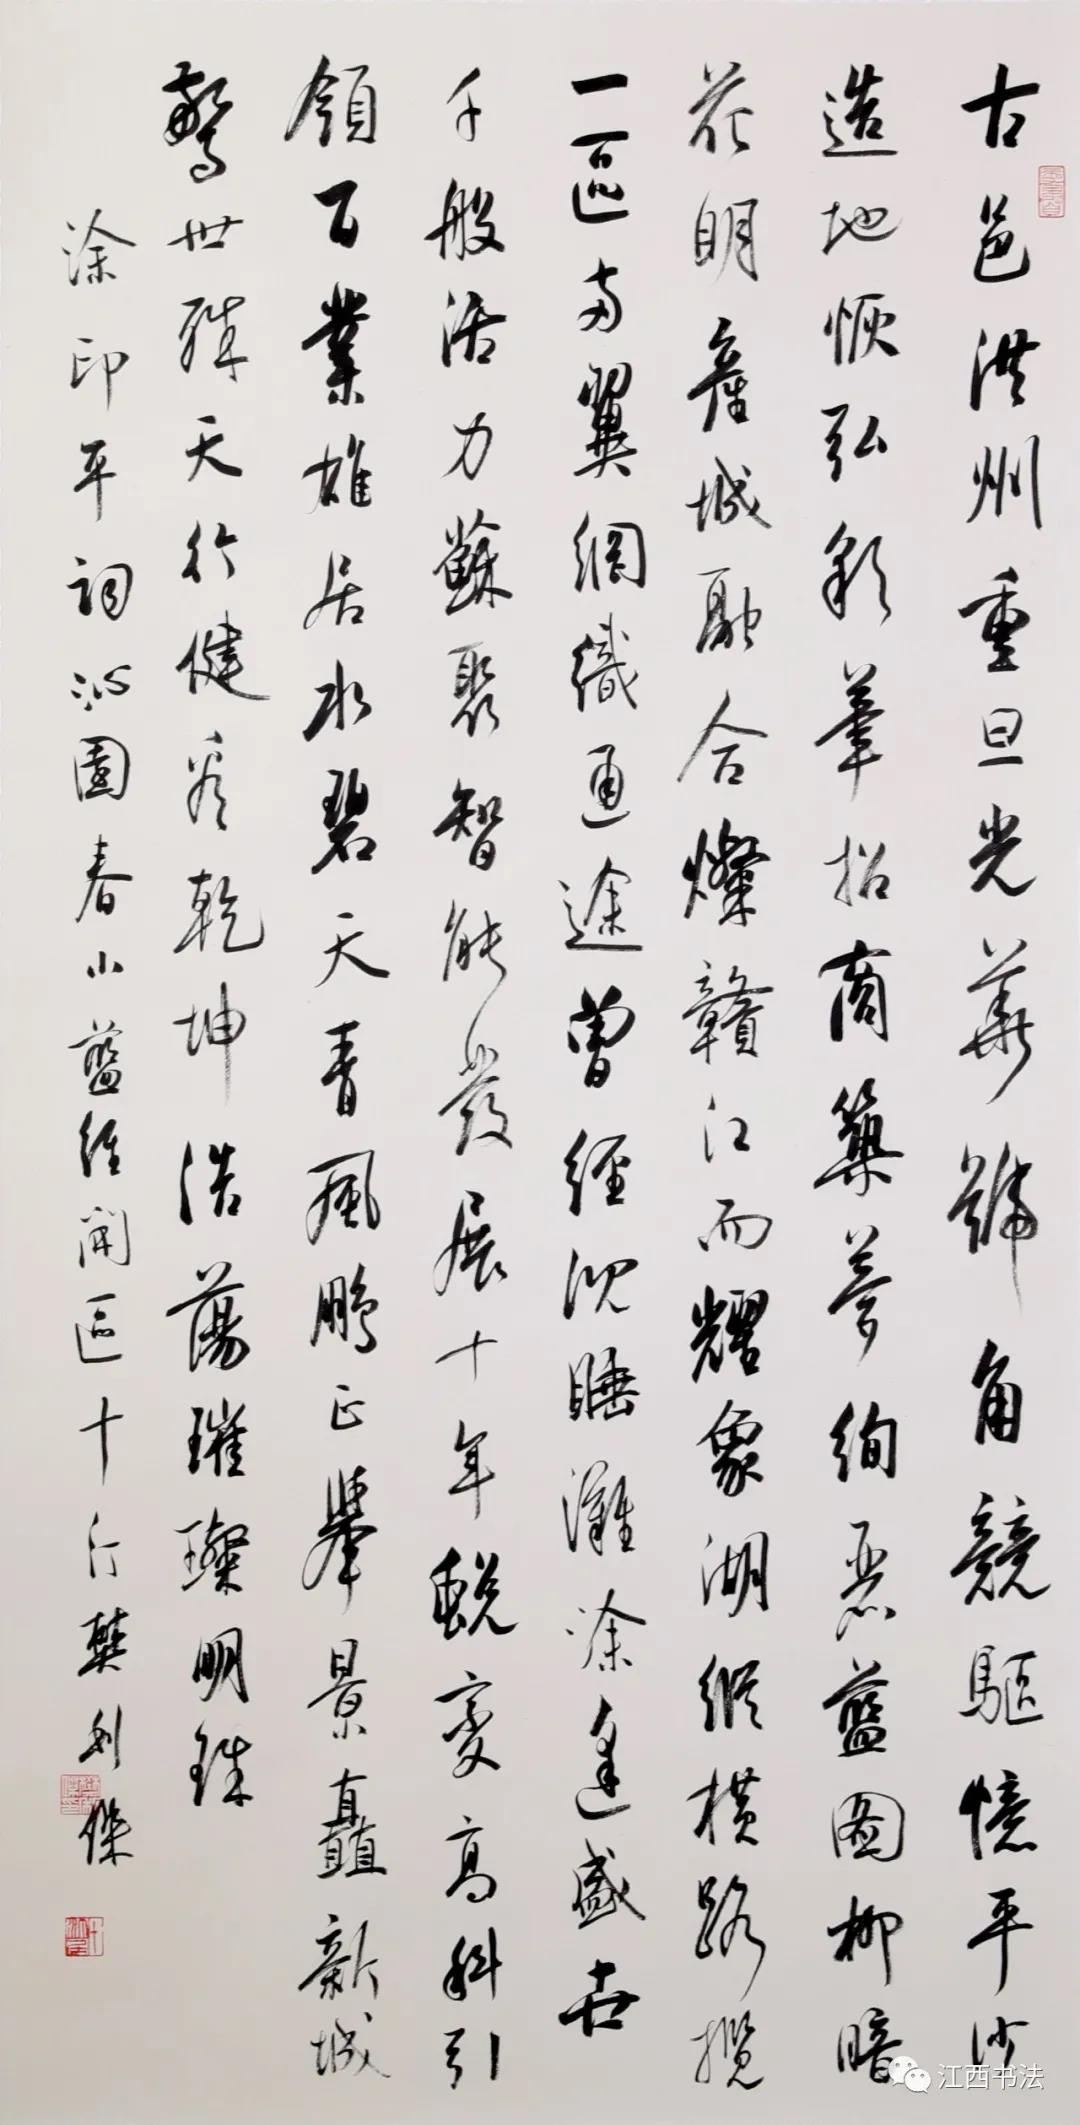 古邑洪州重旦光華號角競驅憶平沙
造地恢弘彩筆招商築夢絢藍圖柳暗
花明舊城融合燦贛江而耀象湖縱橫路攬
一區兩翼網織通途曾經沈睡灘涂逢盛世
千般活力蘇聚智能發展十年蛻變高科引
領百業雄居水碧天青風鵬正舉景矗新城
驚世殊天行健看乾坤浩蕩璀璨明珠
涂印平詞沁園春小藍經開區十行樊利傑
江西书法